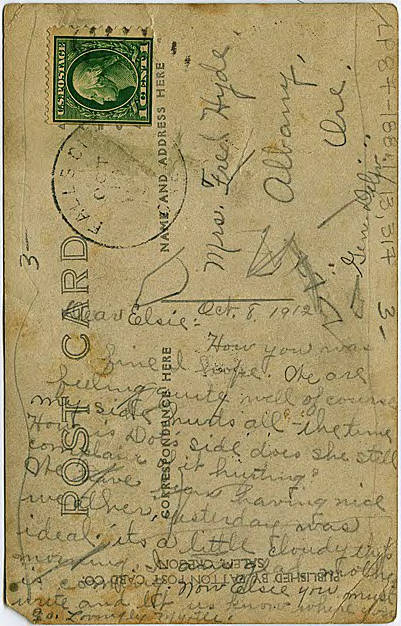 U.S. POSTAGE
1 CENT 1
FALLS C
OCT
POST CARD
NAME AND ADDRESS HERE
CORRESPONDENCE HERE
PUBLISHED BY PATTON POST CARD CO.
SALEM, OREGON
Mrs. Fred Hyde,
Albany,
Ore.
Gen. Deliv.
LP87-1884
13,317
3-
3-
Oct. 8, 1912
Dear Elsie:
How you was
fine I hope. We are
feeling quite well of course
my side hurts all the time
How is Does side does she still
complain of it hurting?
We have been having nice
weather, yesterday was
ideal. its a little cloudy this
morning.
is Now Elsie you must
write and let us know where you
go. Lovingly Myrtle.